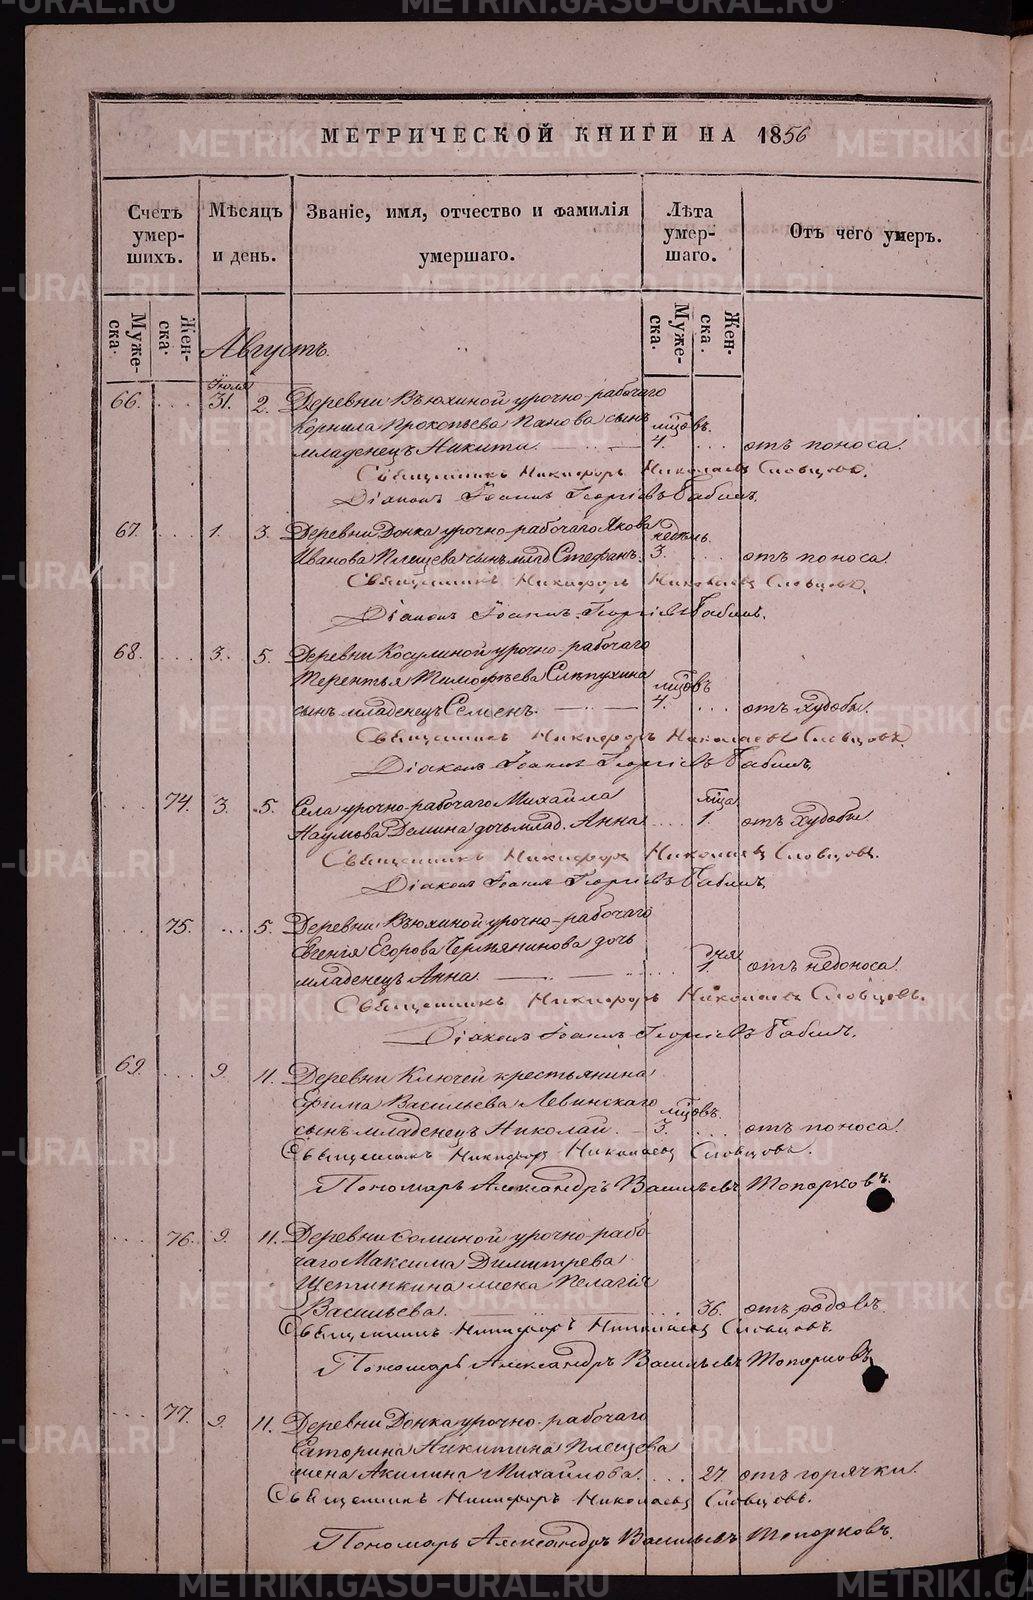 МЕТРИЧЕСКОЙ КНИГИ НА 1856
Счетъ умер-шихъ.
Мѣсяцъ и день.
Званіе, имя, отчество и фамилія умершаго.
Лѣта умер-шаго.
Отъ чего умеръ.
Муже-ска.
Жен-ска.
Муже-ска.
Жен-ска.
Августъ.
Іюля
66. 31. 2. Деревни Вьюхиной урочно-рабочаго
Корнила Прокопьева Панова сынъ мѣцовъ.
младенецъ Никити. 4. отъ поноса.
Священникъ Никифоръ Николаевъ Словцовъ.
Діаконъ Іоаннъ Георгіевъ Бабинъ.
67. 1. 3. Деревни Донка урочно-рабочаго Якова недѣль.
Иванова Плещева сынъ млад. Стефанъ. 3. отъ поноса.
Священникъ Никифоръ Николаевъ Словцовъ.
Діаконъ Іоаннъ Георгіевъ Бабинъ.
68. 3. 5. Деревни Косулиной урочно-рабочаго
Терентья Тимофѣева Слѣпухина мѣцовъ
сынъ младенецъ Семенъ. 4. отъ худобы.
Священникъ Никифоръ Николаевъ Словцовъ.
Діаконъ Іоаннъ Георгіевъ Бабинъ.
74. 3. 5. Села урочно-рабочаго Михаила мѣца
Наумова Демина дочь млад. Анна 1. отъ худобы
Священникъ Никифоръ Николаевъ Словцовъ.
Діаконъ Іоаннъ Георгіевъ Бабинъ.
75. 5. Деревни Вьюхиной урочно-рабочаго
Евгенія Егорова Чермянинова дочь дня
младенецъ Анна. 1. отъ недоноса.
Священникъ Никифоръ Николаевъ Словцовъ.
Діаконъ Іоаннъ Георгіевъ Бабинъ.
69. 9 11. Деревни Ключей крестьянина
Ефима Васильева Левинскаго мѣцовъ.
сынъ младенецъ Николай. 3. отъ поноса.
Священникъ Никифоръ Николаевъ Словцовъ.
Пономарь Александръ Васильевъ Топорковъ.
76. 9. 11. Деревни Соминой урочно-рабо
чаго Максима Димитрева
Щетинкина жена Пелагія
Васильева. 36. отъ родовъ.
Священникъ Никифоръ Николаевъ Словцовъ.
Пономарь Александръ Васильевъ Топорковъ
77. 9 11. Деревни Донка урочно-рабочаго
Никитина Плещева
жена Акилина Михайлова. 27. отъ горячки.
Священникъ Никифоръ Николаевъ Словцовъ.
Пономарь Александръ Васильевъ Топорковъ.
METRIKI.GASO-URAL.RU